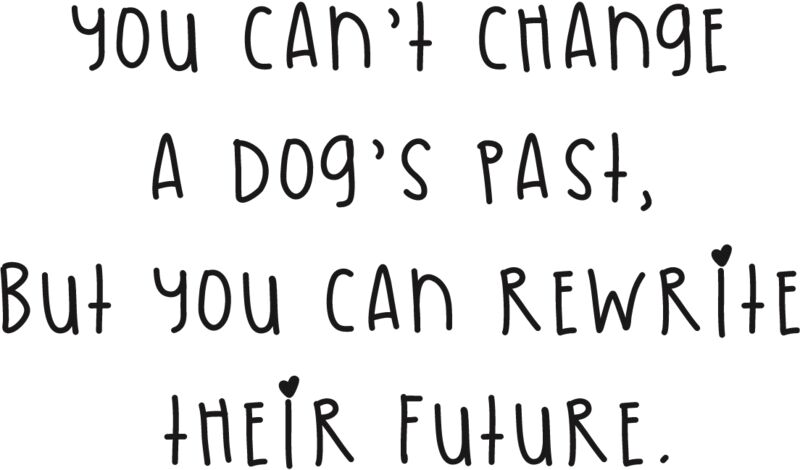 YOU CAN'T CHANGE
A DOG'S PAST,
BUT YOU CAN REWRITE
THEIR FUTURE.